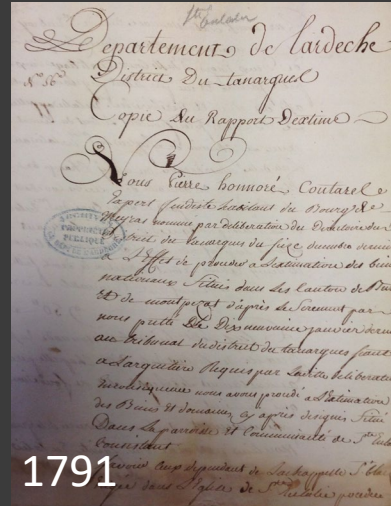 Ste Eulalie
Departement de lardeche
District Du tanargues
Copie Du Rapport Dextime
Nous Pierre honnoré Coutarel
Expert feudiste habitant du Bourg de
Meyras nommé par deliberation du Directoire du
District du tanargues du seize decembre dernier
a L'Effet de proceder a L'estimation des biens
nationaux Situés dans les canton de
Et de montpezat d'après le Serment par
nous prêté Le Dix neuvieme janvier dernier
au tribunal du district du tanargues seant
a Largentiere Requis par Laditte deliberation
nous avons procédé a L'estimation
des Biens et domaines cy après designés Situés
Dans la parroisse Et Communauté de Ste
Consistant
Savoir dependant de La chappelle St
dans L'Eglise de Ste Eulalie
ARCHIVES
PROPRIÉTÉ
PUBLIQUE
1791